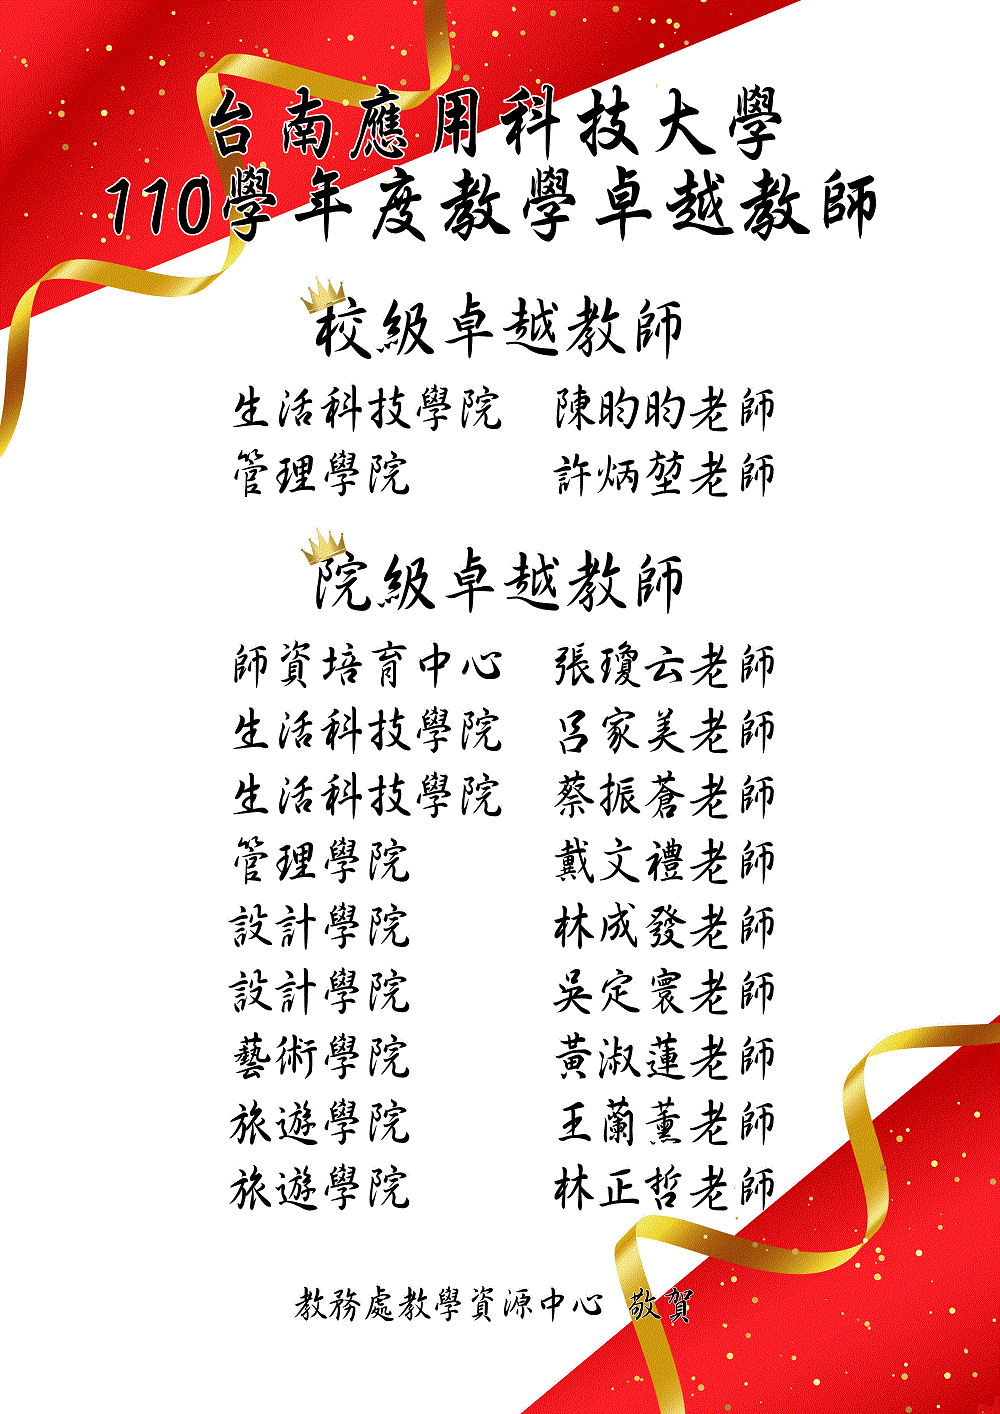 台南應用科技大學
110學年度教學卓越教師
校級卓越教師
生活科技學院 陳昀昀老師
管理學院 許炳堃老師
院級卓越教師
師資培育中心 張瓊云老師
生活科技學院 呂家美老師
生活科技學院 蔡振蒼老師
管理學院 戴文禮老師
設計學院 林成發老師
設計學院 吳定寰老師
藝術學院 黃淑蓮老師
旅遊學院 王蘭薰老師
旅遊學院 林正哲老師
教務處教學資源中心 敬賀